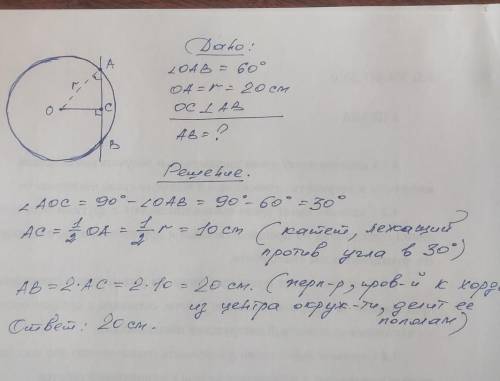 Дано:
∠OAB = 60°
OA = r = 20 см
OC ⊥ AB
AB = ?
A
r
O
C
B
Решение.
∠AOC = 90° - ∠OAB = 90° - 60° = 30°
AC = 1/2 OA = 1/2 r = 10 см (катет, лежащий
против угла в 30°)
AB = 2·AC = 2·10 = 20 см. (перп-р, пров-й к хорде
из центра окруж-ти, делит её
пополам)
Ответ: 20 см.